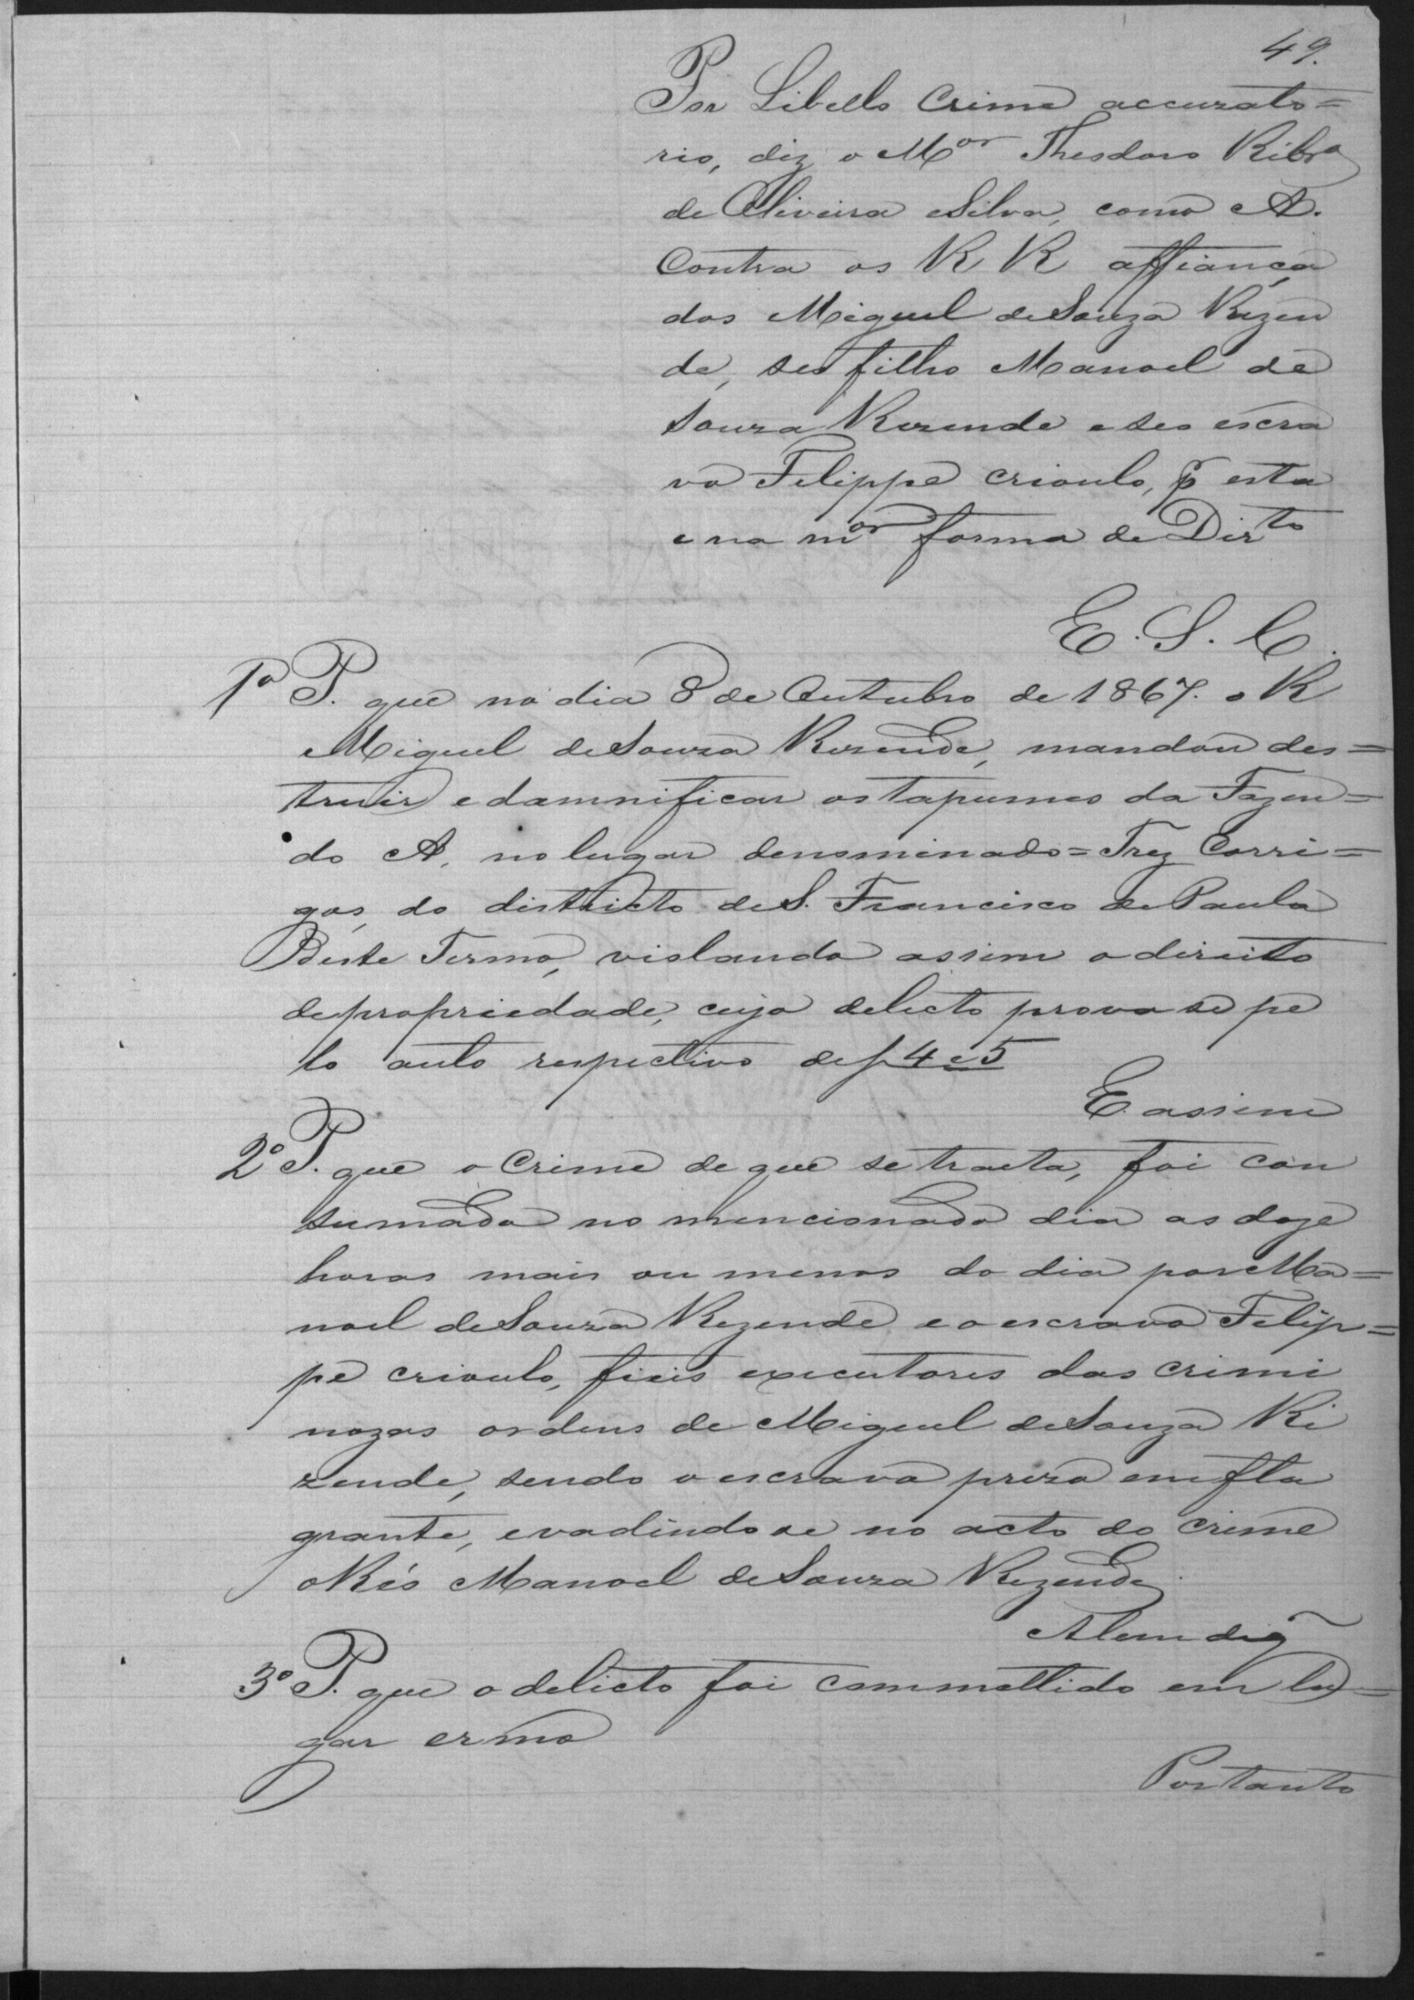 49.
Por Libello Crime accuzato=
rio, diz o M.or Theodoro Ribr.o
de Oliveira e Silva, como A.
Contra os R R affiança
dos Miguel de Souza Rezen
de, seo filho Manoel de
Souza Rezende e seo escra
vo Filippe crioulo, p esta
e na m.or forma de Dir.to
E. S. C.
1º P. que no dia 8 de Outubro de 1867. o R
Miguel de Souza Rezende, mandou des=
truir e damnificar os tapumes da Fazen=
do A, no lugar denominado = Trez Corri=
gos, do districto de S. Francisco de Paula
Deste Termo, violando assim o direito
de propriedade, cujo delicto prova se pe
lo auto respectivo de f 4 e 5
E assim
2º P. que o Crime de que se tracta, foi con
sumado no mencionado dia as doze
horas mais ou menos do dia por Ma=
noel de Souza Rezende e o escravo Filip=
pe crioulo, fieis executores das crimi
nozas ordens de Miguel de Souza Re
zende, sendo o escravo prezo em fla
grante, evadindo se no acto do crime
o Réo Manoel de Souza Rezende.
Alem diç
3º P. que o delicto foi commettido em lu=
gar ermo
Portanto